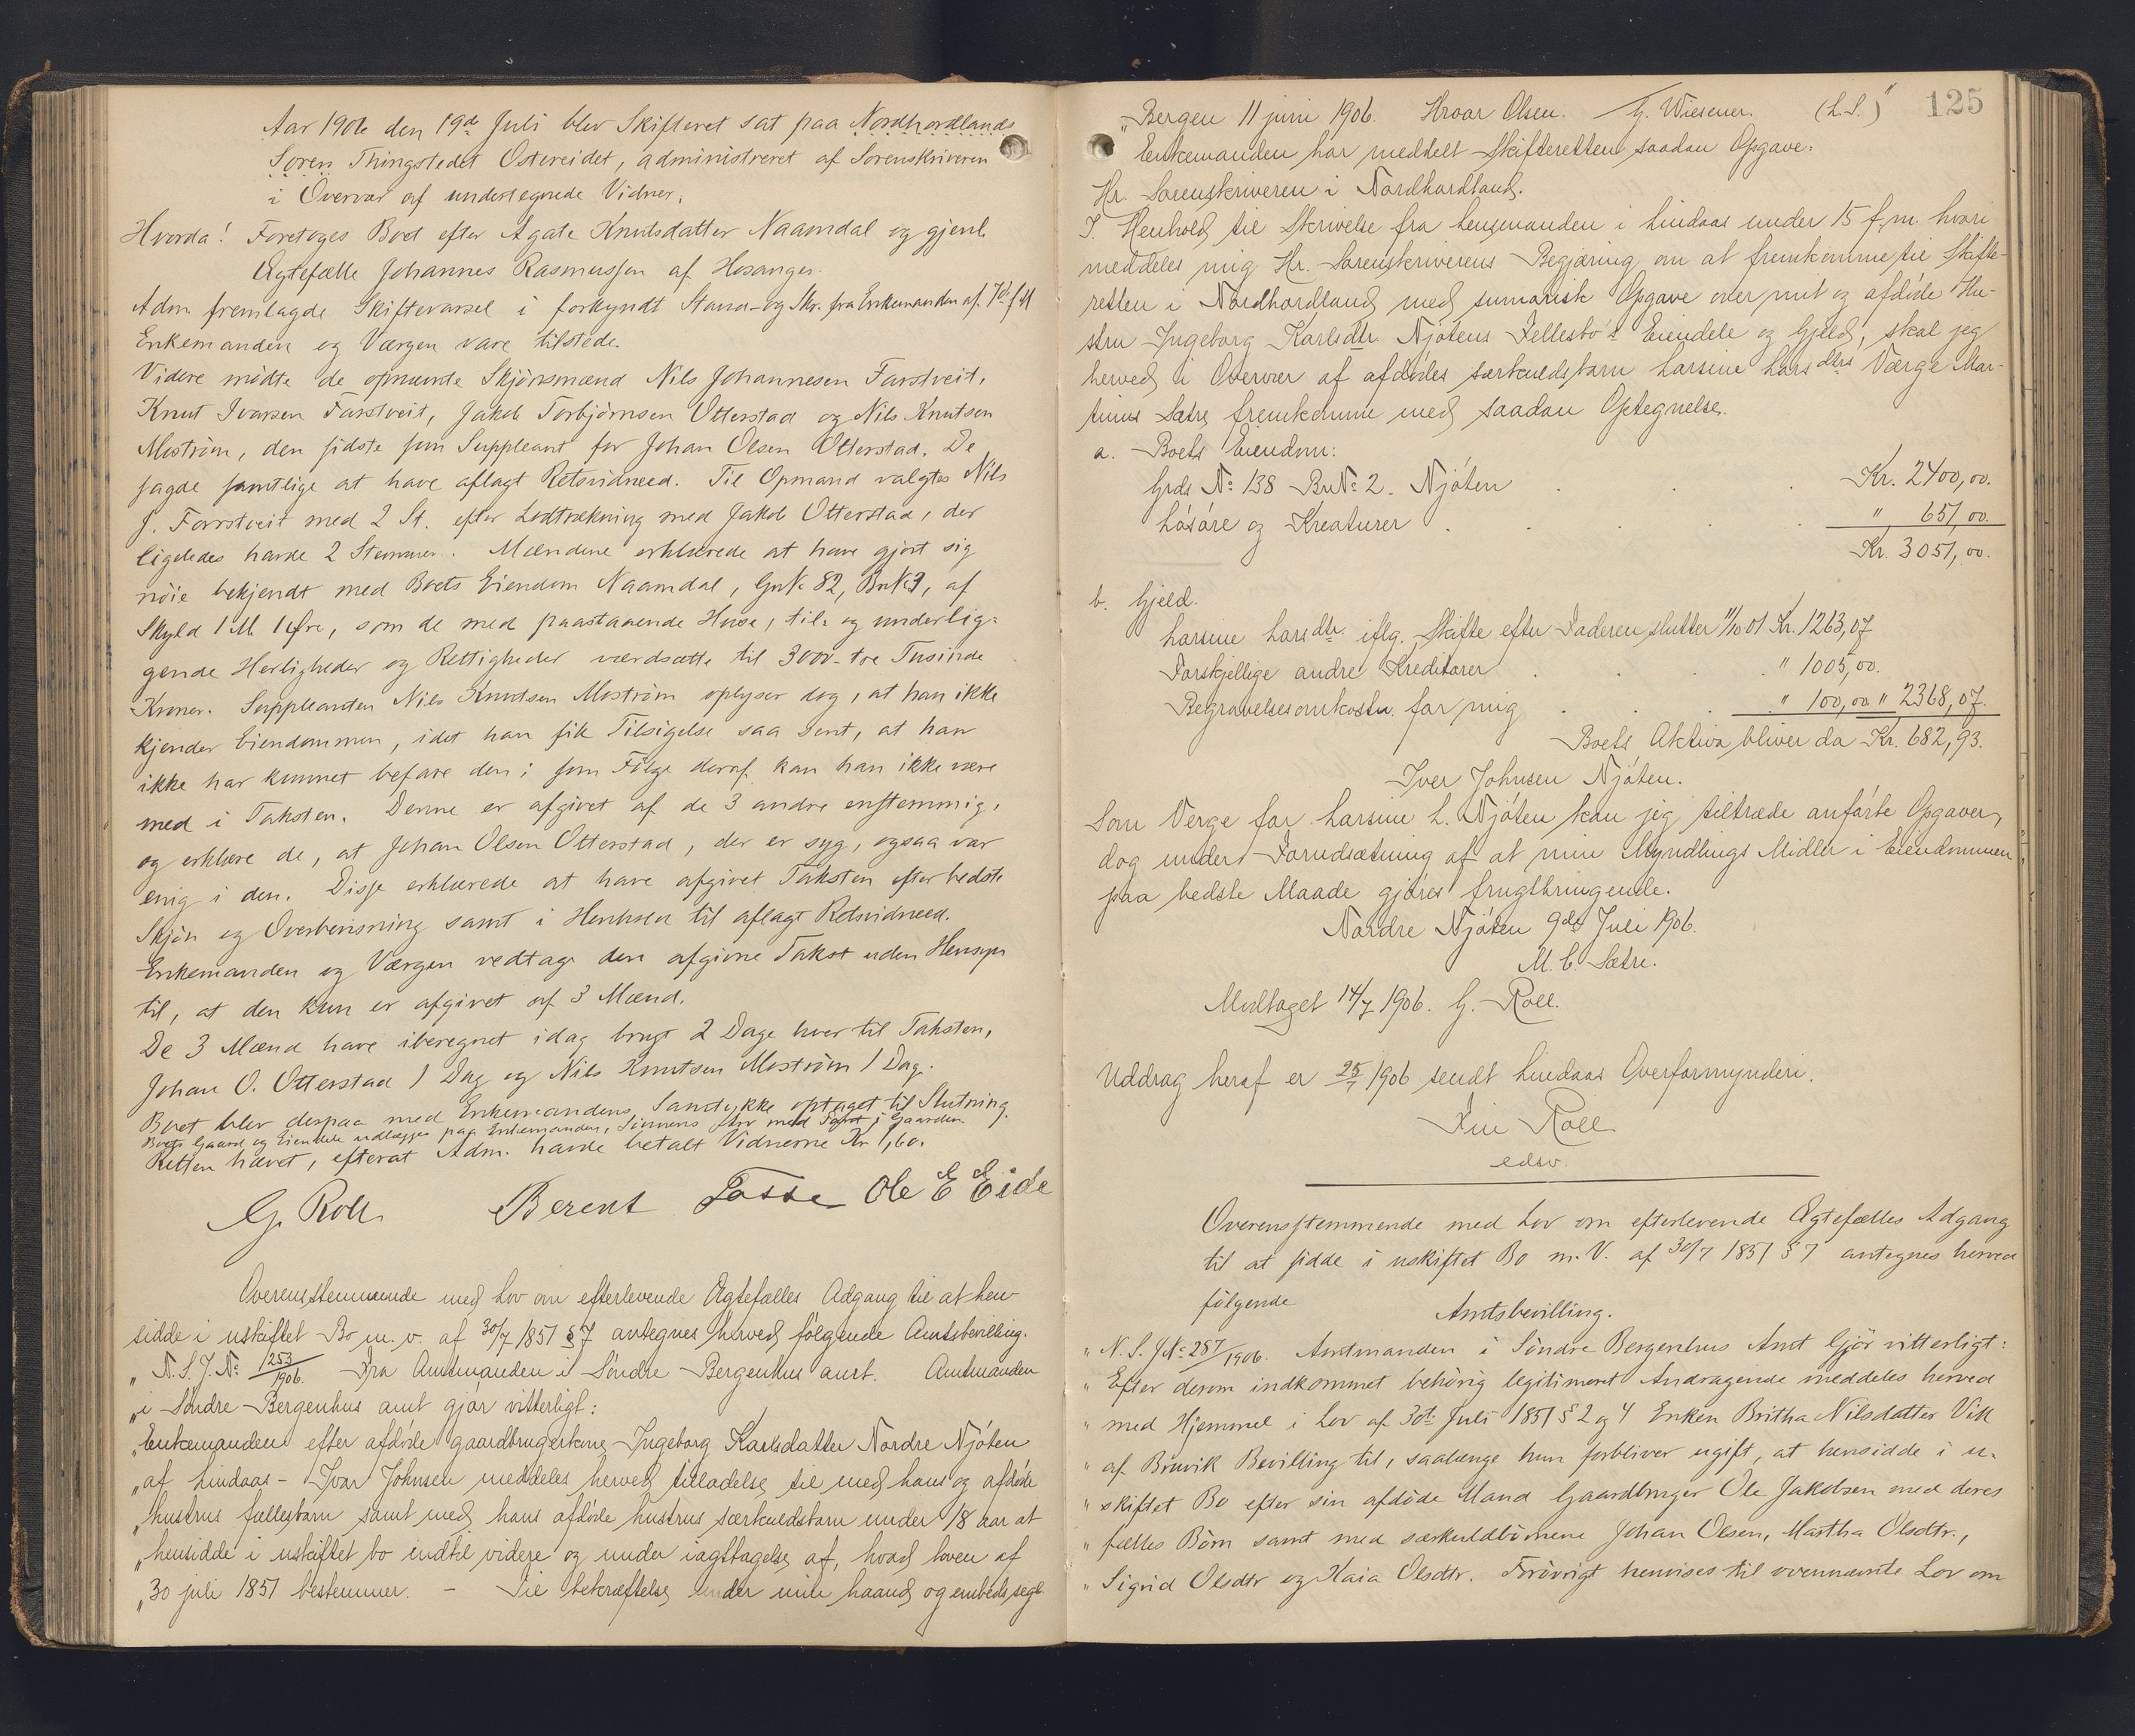 Aar 1906 den 19de Juli blev Skifteret sat paa Nordhordlands
Soren. Thingstedet Ostereidet, administreret af Sorenskriveren
i Overvær af undertegnede Vidner.
Hvorda! Foretoges Boet efter Agate Knutsdatter Naamdal og gjenl.
Ægtefælle Johannes Rasmussen af Hosanger.
Adm. fremlagde Skiftevarsel i forkyndt Stand og Skr. fra Enkemanden af 7de
Enkemanden og Værgen vare tilstede.
Videre mödte de opnævnte Skjönsmænd Nils Johannesen Farstveit,
Knut Ivarsen Farstveit, Jakob Torbjörnsen Otterstad og Nils Knutsen
Moström, den sidste som Suppleant for Johan Olsen Otterstad. De
sagde samtlige at have aflagt Retsvidneed. Til Opmand valgtes Nils
J. Farstveit med 2 St. efter Lodtrækning med Jakob Otterstad, der
ligeledes havde 2 Stemmer. Mændene erklærede at have gjort sig
nöie bekjendt med Boets Eiendom Naamdal, GnN: 82, BnN: 3, af
Skyld 1 M. 1 Öre, som de med paastaaende Huse, til- og underlig-
gende Herligheder og Rettigheder værdsatte til 3000 - tre Tusinde
Kroner. Suppleanten Nils Knutsen Moström oplyser dog, at han ikke
kjender Eiendommen, idet han fik Tilsigelse saa sent, at han
ikke har kunnet befare den; som Fölge deraf kan han ikke være
med i Taksten. Denne er afgivet af de 3 andre enstemmig,
og erklære de, at Johan Olsen Otterstad, der er syg, ogsaa var
enig i den. Disse erklærede at have afgivet Taksten efter bedste
Skjön og Overbevisning samt i Henhold til aflagt Retsvidneed.
Enkemanden og Værgen vedtage den afgivne Takst uden Hensyn
til, at den kun er afgivet af 3 Mænd.
De 3 Mænd have iberegnet idag brugt 2 Dage hver til Taksten,
Johan O. Otterstad 1 Dag og Nils Knutsen Moström 1 Dag.
Boet blev derpaa med Enkemandens Samtykke optaget til Slutning.
Boets Gaard og Eiendele udlægges paa Enkemanden, Sönnens Arv med Pant i Gaarden.
Retten hævet, efterat Adm. havde betalt Vidnerne Kr 1,60.
G. Roll Berent Tosse Ole E Eide
Overensstemmende med Lov om efterlevende Ægtefælles Adgang til at hen-
sidde i uskiftet Bo m. v. af 30/7 1851 § 7 antegnes herved følgende Amtsbevilling.
"N. S. J. No: 1253/1906. Fra Amtmanden i Søndre Bergenhus amt. Amtmanden
"i Søndre Bergenhus amt gjør vitterligt:
"Enkemanden efter afdøde gaardbrugerkone Ingeborg Karlsdatter Nordre Njøten
"af Lindaas - Ivar Johnsen meddeles herved tilladelse til med hans og afdøde
"hustrus fællesbarn samt med hans afdøde hustrus særkuldsbarn under 18 aar at
"hensidde i uskiftet bo indtil videre og under iagttagelse af, hvad loven af
"30 juli 1851 bestemmer. - Til bekræftelse under min haand og embedssegl.
125
"Bergen 11 juni 1906. Hroar Olsen. G. Wiesener. (L.S.)"
Enkemanden har meddelt Skifteretten saadan Opgave:
Hr. Sorenskriveren i Nordhordland.
I Henhold til Skrivelse fra Lensmanden i Lindaas under 15 f. m. hvori
meddeles mig Hr. Sorenskriverens Begjæring om at fremkomme til Skifte-
retten i Nordhordland med sumarisk Opgave over mit og afdøde Hu-
stru Ingeborg Karlsdtr. Njøtens Fellesbo's Eiendele og Gjeld, skal jeg
herved i Overvær af afdødes særkuldsbarn Larsine Larsdtrs Værge Mar-
tinus Sætre fremkomme med saadan Optegnelse.
a. Boets Eiendom:
Grds No: 138 BrNo: 2. Njøten . . . Kr. 2400,00.
Løsøre og Kreaturer . . . . . " 651,00.
Kr. 3051,00.
b. Gjeld.
Larsine Larsdtr. iflg. Skifte efter Faderen, slutter 11/10 01 Kr. 1263,07
Forskjellige andre Kreditorer . . . . " 1005,00.
Begravelsesomkostn. for mig . . . " 100,00 " 2368,07.
Boets Aktiva bliver da Kr. 682,93.
Iver Johnsen Njøten.
Som Verge for Larsine L. Njøten kan jeg tiltræde anførte Opgaver,
dog under Forudsætning af at min Myndlings Midler i Eiendommen
paa bedste Maade gjøres frugtbringende.
Nordre Njøten 9de Juli 1906.
M. C. Sætre.
Modtaget 14/7 1906. G. Roll.
Uddrag heraf er 25/7 1906 sendt Lindaas Overformynderi.
Roll
edsv.
Overensstemmende med Lov om efterlevende Ægtefælles Adgang
til at sidde i uskiftet Bo m. V. af 30/7 1851 § 7 antegnes herved
fölgende Amtsbevilling.
" N. S. JNo: 287/1906. Amtmanden i Söndre Bergenhus Amt Gjör vitterligt:
" Efter derom indkommet behörig legitimeret Andragende meddeles herved
" med Hjemmel i Lov af 30te Juli 1851 § 2 og 4 Enken Britha Nilsdatter Vik
" af Bruvik Bevilling til, saalænge hun forbliver ugift, at hensidde i u-
" skiftet Bo efter sin afdöde Mand Gaardbruger Ole Jakobsen med deres
" fælles Börn samt med særkuldbörnene Johan Olsen, Martha Olsdtr.,
" Sigrid Olsdtr og Kaia Olsdtr. Forövrigt henvises til ovennævnte Lov om